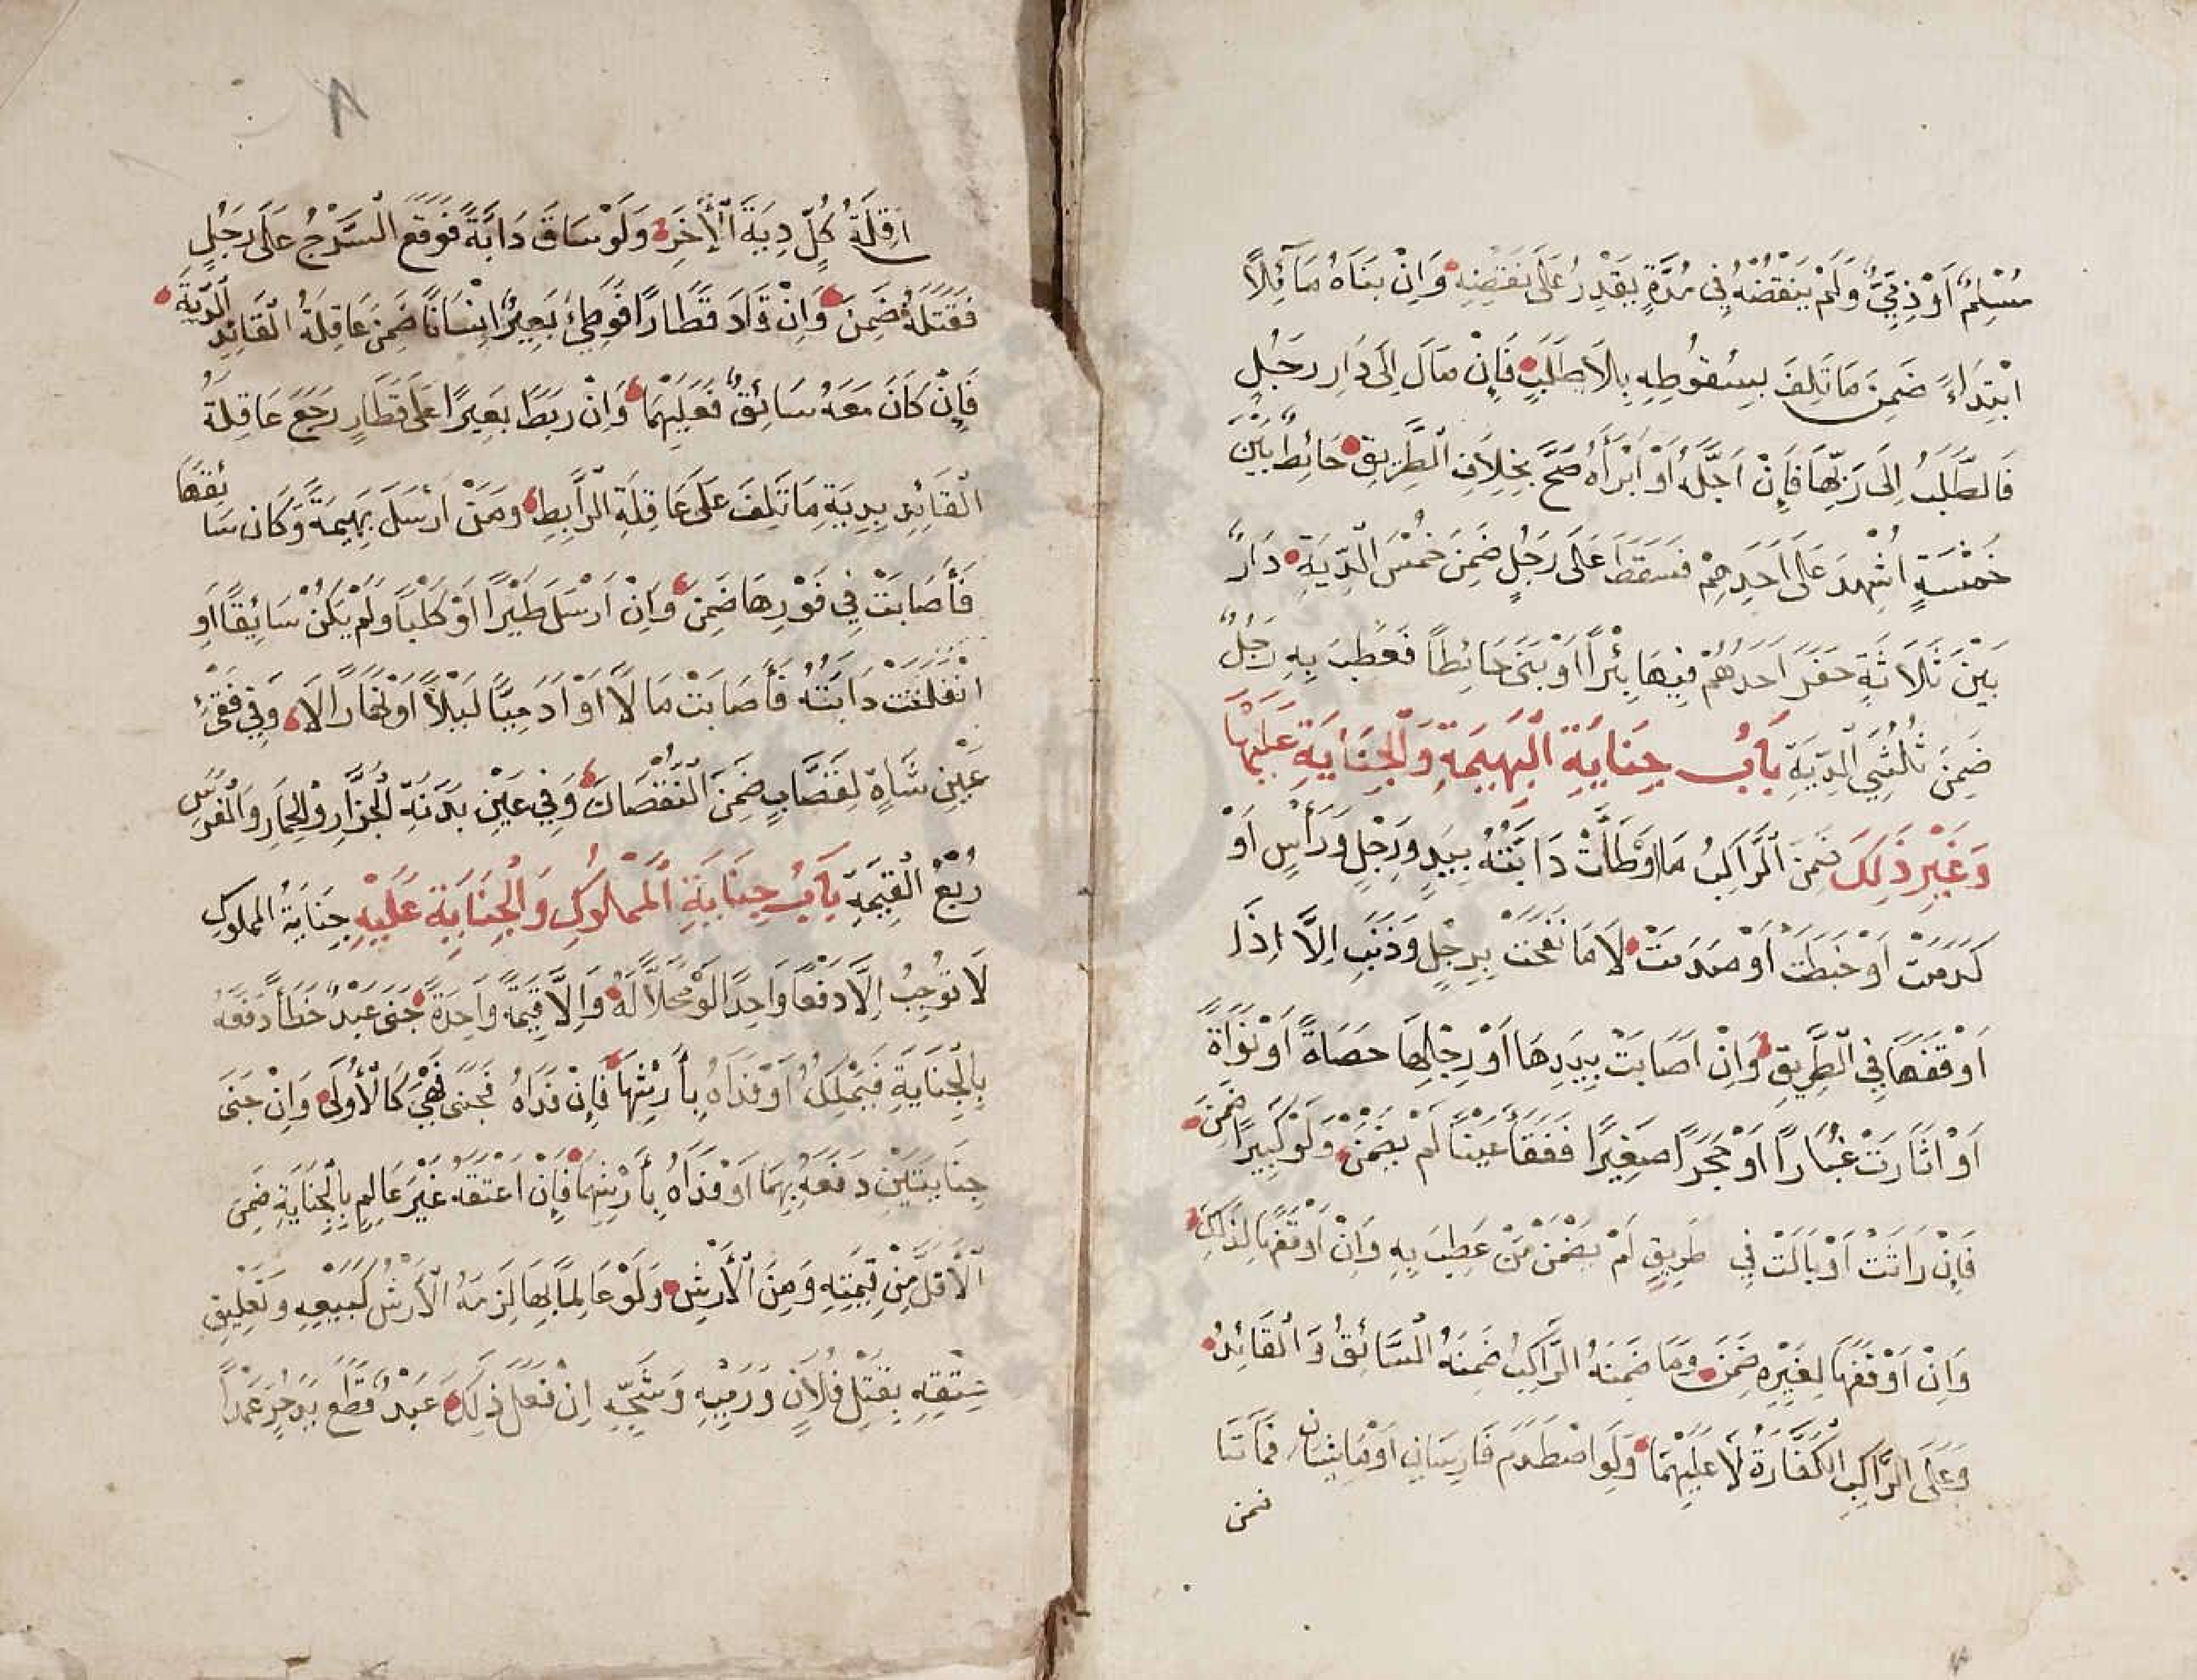 مُسْلِمٌ اَوْ ذِمِّيٌّ وَلَمْ يَنْقُضْهُ فِي مُدَّةٍ يَقْدِرُ عَلَى نَقْضِهِ وَاِنْ بَنَاهُ مَائِلًا
ابْتِدَاءً ضَمِنَ مَا تَلِفَ بِسُقُوطِهِ بِلَا طَلَبٍ فَاِنْ مَالَ اِلَى دَارِ رَجُلٍ
فَالطَّلَبُ اِلَى رَبِّهَا فَاِنْ اَجَّلَهُ اَوْ اَبْرَأَهُ صَحَّ بِخِلَافِ الطَّرِيقِ حَائِطٌ بَيْنَ
خَمْسَةٍ اُشْهِدَ عَلَى اَحَدِهِمْ فَسَقَطَ عَلَى رَجُلٍ ضَمِنَ خُمُسَ الدِّيَةِ دَارٌ
بَيْنَ ثَلَاثَةٍ حَفَرَ اَحَدُهُمْ فِيهَا بِئْرًا اَوْ بَنَى حَائِطًا فَعَطِبَ بِهِ رَجُلٌ
ضَمِنَ ثُلُثَيِ الدِّيَةِ بَابُ جِنَايَةِ الْبَهِيمَةِ وَالْجِنَايَةِ عَلَيْهَا
وَغَيْرِ ذَلِكَ ضَمِنَ الرَّاكِبُ مَا اَوْطَأَتْ دَابَّتُهُ بِيَدٍ وَرِجْلٍ وَرَأْسٍ اَوْ
كَدَمَتْ اَوْ خَبَطَتْ اَوْ صَدَمَتْ لَا مَا نَفَحَتْ بِرِجْلٍ وَذَنَبٍ اِلَّا اِذَا
اَوْقَفَهَا فِي الطَّرِيقِ وَاِنْ اَصَابَتْ بِيَدِهَا اَوْ رِجْلِهَا حَصَاةً اَوْ نَوَاةً
اَوْ اَثَارَتْ غُبَارًا اَوْ حَجَرًا صَغِيرًا فَفَقَأَ عَيْنًا لَمْ يَضْمَنْ وَلَوْ كَبِيرًا ضَمِنَ
فَاِنْ رَاثَتْ اَوْ بَالَتْ فِي طَرِيقٍ لَمْ يَضْمَنْ مَنْ عَطِبَ بِهِ وَاِنْ اَوْقَفَهَا لِذَلِكَ
وَاِنْ اَوْقَفَهَا لِغَيْرِهِ ضَمِنَ وَمَا ضَمِنَهُ الرَّاكِبُ ضَمِنَهُ السَّائِقُ وَالْقَائِدُ
وَعَلَى الرَّاكِبِ الْكَفَّارَةُ لَا عَلَيْهِمَا وَلَوِ اصْطَدَمَ فَارِسَانِ اَوْ مَاشِيَانِ فَمَاتَا
ضمن
اقِلَةُ كُلٍّ دِيَةَ الْآخَرِ وَلَوْ سَاقَ دَابَّةً فَوَقَعَ السَّرْجُ عَلَى رَجُلٍ
فَقَتَلَهُ ضَمِنَ وَاِنْ قَادَ قِطَارًا فَوَطِئَ بَعِيرٌ اِنْسَانًا ضَمِنَ عَاقِلَةُ الْقَائِدِ الدِّيَةَ
فَاِنْ كَانَ مَعَهُ سَائِقٌ فَعَلَيْهِمَا وَاِنْ رَبَطَ بَعِيرًا عَلَى قِطَارٍ رَجَعَ عَاقِلَةُ
الْقَائِدِ بِدِيَةِ مَا تَلِفَ عَلَى عَاقِلَةِ الرَّابِطِ وَمَنْ اَرْسَلَ بَهِيمَةً وَكَانَ سَائِقَهَا
فَأَصَابَتْ فِي فَوْرِهَا ضَمِنَ وَاِنْ اَرْسَلَ طَيْرًا اَوْ كَلْبًا وَلَمْ يَكُنْ سَائِقًا اَوِ
انْفَلَتَتْ دَابَّتُهُ فَأَصَابَتْ مَالًا اَوْ اٰدَمِيًّا لَيْلًا اَوْ نَهَارًا لَا وَفِي فَقْءِ
عَيْنِ شَاةٍ لِقَصَّابٍ ضَمِنَ النُّقْصَانَ وَفِي عَيْنِ بَدَنَةِ الْجَزَّارِ وَالْحِمَارِ وَالْفَرَسِ
رُبْعُ الْقِيمَةِ بَابُ جِنَايَةِ الْمَمْلُوكِ وَالْجِنَايَةِ عَلَيْهِ جِنَايَةُ الْمَمْلُوكِ
لَا تُوجِبُ اِلَّا دَفْعًا وَاحِدًا لَوْ مَحَلًّا لَهُ وَاِلَّا قِيمَةً وَاحِدَةً جَنَى عَبْدٌ خَطَأً دَفَعَهُ
بِالْجِنَايَةِ فَيَمْلِكُهُ اَوْ فَدَاهُ بِأَرْشِهَا فَاِنْ فَدَاهُ فَجَنَى فَهِيَ كَالْأُولَى وَاِنْ جَنَى
جِنَايَتَيْنِ دَفَعَهُ بِهِمَا اَوْ فَدَاهُ بِأَرْشِهِمَا فَاِنْ اَعْتَقَهُ غَيْرَ عَالِمٍ بِالْجِنَايَةِ ضَمِنَ
الْأَقَلَّ مِنْ قِيمَتِهِ وَمِنَ الْأَرْشِ وَلَوْ عَالِمًا بِهَا لَزِمَهُ الْأَرْشُ كَبَيْعِهِ وَتَعْلِيقِ
عِتْقِهِ بِقَتْلِ فُلَانٍ وَرَمْيِهِ وَشَجِّهِ اِنْ فَعَلَ ذَلِكَ عَبْدٌ قَطَعَ يَدَ حُرٍّ عَمْدًا